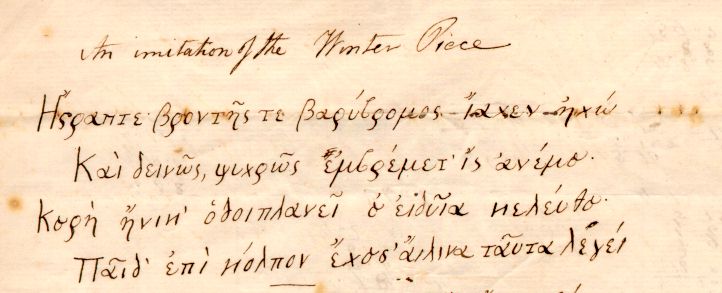 An imitation of the Winter Piece
Ἤϛραπτε βροντῆς τε βαρύβρομος ἴαχεν ἠχώ
Καὶ δεινῶς, ψυχρῶς ἐμβρέμετ' ἲς ἀνέμȣ·
Κȣρὴ ἥνικ' ὁδοιπλανεῖ ȣ̓ εἰδυῖα κελεύθȣ·
Παῖδ' ἐπὶ κόλπον ἔχȣσ' ἄιλινα ταῦτα λεγεί